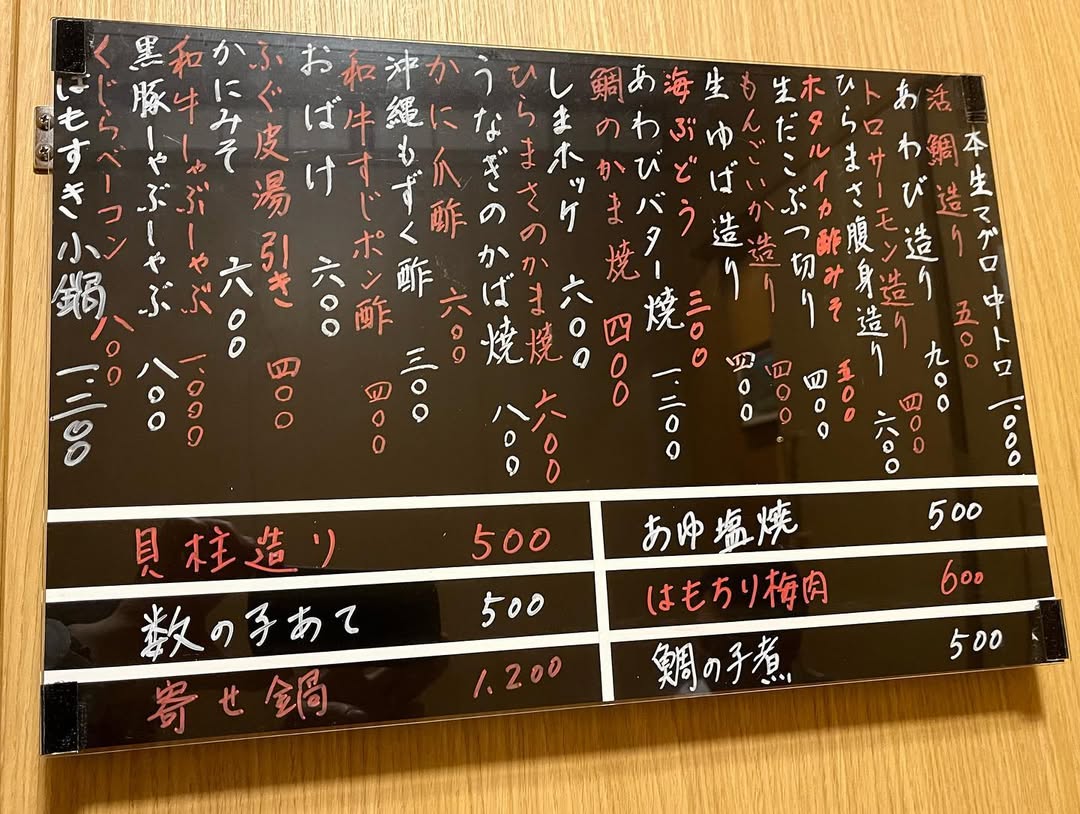 本生マグロ中トロ 一、000
活鯛造り 五00
あわび造り 九00
トロサーモン造り 四00
ひらまさ腹身造り 六00
ホタルイカ酢みそ 五00
生だこぶつ切り 四00
もんごいか造り 四00
生ゆば造り 四00
海ぶどう 三00
あわびバター焼 一、二00
鯛のかま焼 四00
しまホッケ 六00
ひらまさのかま焼 六00
うなぎのかば焼 八00
かに爪酢 六00
沖縄もずく酢 三00
和牛すじポン酢 四00
おばけ 六00
ふぐ皮湯引き 四00
かにみそ 六00
和牛しゃぶしゃぶ 一、000
黒豚しゃぶしゃぶ 八00
くじらベーコン 八00
はもすき小鍋 一、二00
貝柱造り 500
数の子あて 500
寄せ鍋 1.200
あゆ塩焼 500
はもちり梅肉 600
鯛の子煮 500